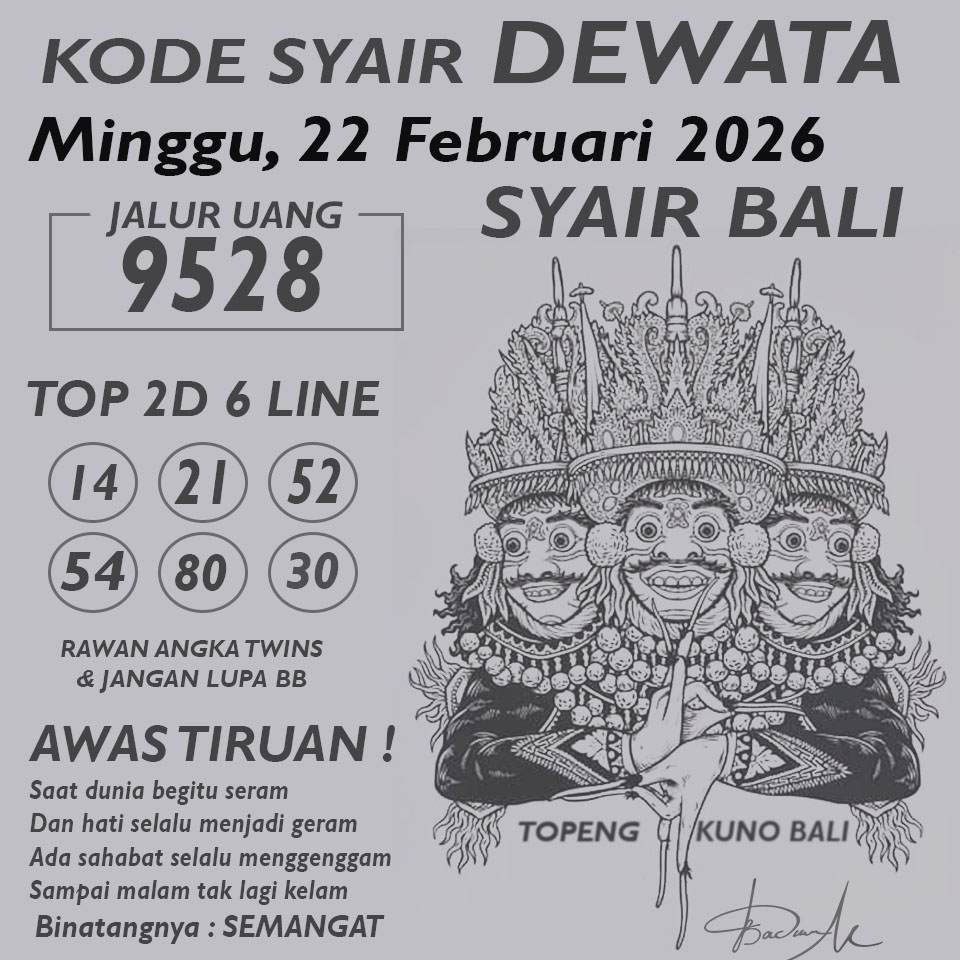 KODE SYAIR DEWATA
Minggu, 22 Februari 2026
SYAIR BALI
JALUR UANG
9528
TOP 2D 6 LINE
14 21 52
54 80 30
RAWAN ANGKA TWINS
& JANGAN LUPA BB
AWAS TIRUAN !
Saat dunia begitu seram
Dan hati selalu menjadi geram
Ada sahabat selalu menggenggam
Sampai malam tak lagi kelam
Binatangnya : SEMANGAT
TOPENG KUNO BALI